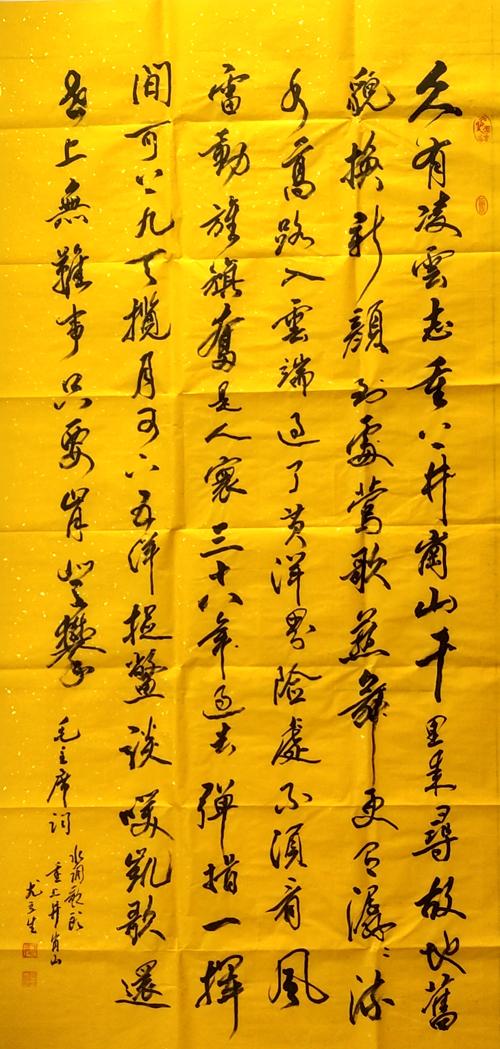 久有凌雲志重上井崗山千里来尋故地舊
貌換新顏到處莺歌燕舞更有潺潺流
水高路入雲端過了黄洋界險處不須看風
雷動旌旗奮是人寰三十八年過去弹指一揮
间可上九天揽月可下五洋捉鳖谈笑凯歌還
世上無難事只要肯登攀
毛主席词
水调歌头
重上井岗山